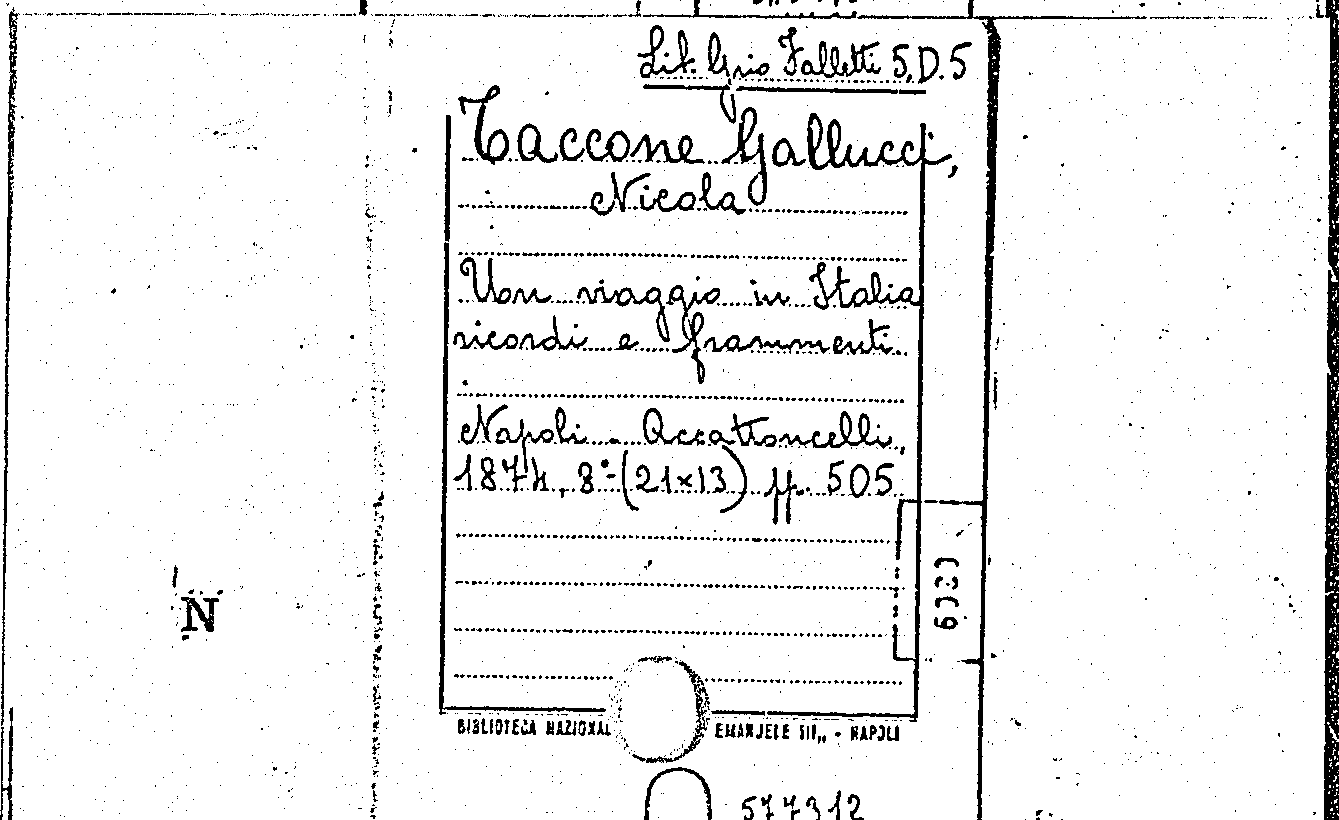 Lib. Grio Falletti 5.D.5
Taccone Gallucci,
Nicola
Uon viaggio in Italia
ricordi e frammenti.
Napoli - Accattoncelli,
1874, 8°-(21×13) pp. 505
N
BIBLIOTECA NAZIONAL EMANUELE III„ - NAPOLI
577312